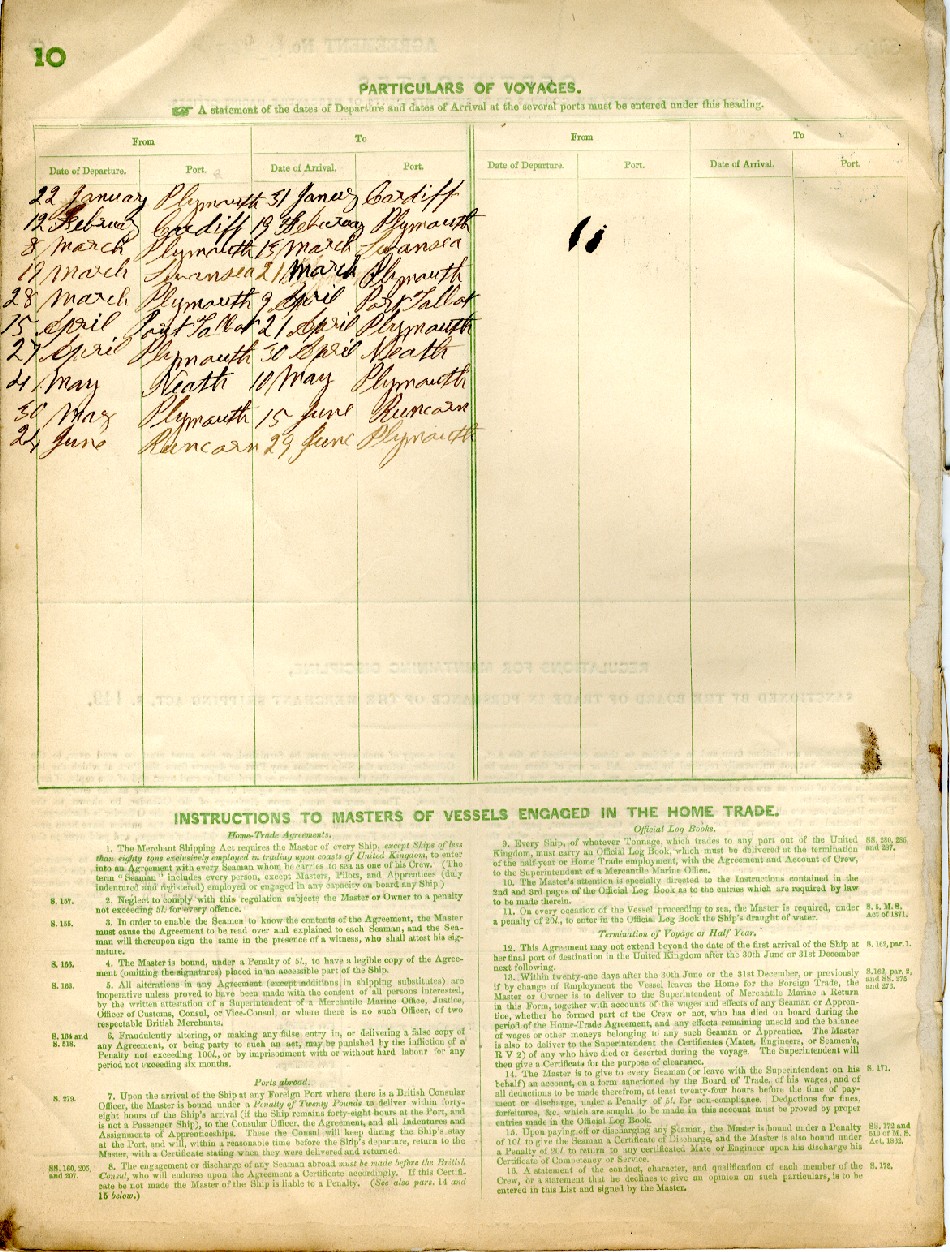 10
PARTICULARS OF VOYAGES.
A statement of the dates of Departure and dates of Arrival at the several ports must be entered under this heading.
From To From To
Date of Departure. Port. Date of Arrival. Port. Date of Departure. Port. Date of Arrival. Port.
22 January Plymouth 31 Cardiff
12 Cardiff 19 Plymouth
8 March Plymouth 15 March Swansea
March Swansea 21 March Plymouth
28 March Plymouth 9 April Port Talbot
15 April Port Talbot 21 April Plymouth
27 April Plymouth 30 April Neath
4 May Neath 10 May Plymouth
30 May Plymouth 15 June Runcorn
24 June Runcorn 29 June Plymouth
INSTRUCTIONS TO MASTERS OF VESSELS ENGAGED IN THE HOME TRADE.
Home-Trade Agreements.
1. The Merchant Shipping Act requires the Master of every Ship, except Ships of less
than eighty tons exclusively employed in trading upon coasts of United Kingdom, to enter
into an Agreement with every Seaman whom he carries to sea as one of his Crew. (The
term "Seaman" includes every person, except Masters, Pilots, and Apprentices (duly
indentured and registered) employed or engaged in any capacity on board any Ship.)
S. 157. 2. Neglect to comply with this regulation subjects the Master or Owner to a penalty
not exceeding 5l. for every offence.
S. 155. 3. In order to enable the Seaman to know the contents of the Agreement, the Master
must cause the Agreement to be read over and explained to each Seaman, and the Sea-
man will thereupon sign the same in the presence of a witness, who shall attest his sig-
nature.
4. The Master is bound, under a Penalty of 5l., to have a legible copy of the Agree-
ment (omitting the signatures) placed in an accessible part of the Ship.
S. 163. 5. All alterations in any Agreement (except additions in shipping substitutes) are
inoperative unless proved to have been made with the consent of all persons interested,
by the written attestation of a Superintendent of a Mercantile Marine Office, Justice,
Officer of Customs, Consul, or Vice-Consul, or where there is no such Officer, of two
respectable British Merchants.
6. Fraudulently altering, or making any false entry in, or delivering a false copy of
any Agreement, or being party to such an act, may be punished by the infliction of a
Penalty not exceeding 100l., or by imprisonment with or without hard labour for any
period not exceeding six months.
Ports abroad.
S. 279. 7. Upon the arrival of the Ship at any Foreign Port where there is a British Consular
Officer, the Master is bound under a Penalty of Twenty Pounds to deliver within forty-
eight hours of the Ship's arrival (if the Ship remains forty-eight hours at the Port, and
is not a Passenger Ship), to the Consular Officer, the Agreement, and all Indentures and
Assignments of Apprenticeships. These the Consul will keep during the Ship's stay
at the Port, and will, within a reasonable time before the Ship's departure, return to the
Master, with a Certificate stating when they were delivered and returned.
SS. 160, 205, and 207. 8. The engagement or discharge of any Seaman abroad must be made before the British
Consul, who will endorse upon the Agreement a Certificate accordingly. If this Certifi-
cate be not made the Master of the Ship is liable to a Penalty. (See also pars. 14 and
15 below.)
Official Log Books.
9. Every Ship, of whatever Tonnage, which trades to any port out of the United
Kingdom, must carry an Official Log Book, which must be delivered at the termination
of the half-year or Home Trade employment, with the Agreement and Account of Crew,
to the Superintendent of a Mercantile Marine Office.
10. The Master's attention is specially directed to the Instructions contained in the
2nd and 3rd pages of the Official Log Book as to the entries which are required by law
to be made therein.
11. On every occasion of the Vessel proceeding to sea, the Master is required, under
a penalty of to enter in the Official Log Book the Ship's draught of water.
Termination of Voyage or Half Year.
12. This Agreement may not extend beyond the date of the first arrival of the Ship at
her final port of destination in the United Kingdom after the 30th June or 31st December
next following.
13. Within twenty-one days after the 30th June or the 31st December, or previously
if by change of Employment the Vessel leaves the Home for the Foreign Trade, the
Master or Owner is to deliver to the Superintendent of Mercantile Marine a Return
in this Form, together with account of the wages and effects of any Seaman or Appren-
tice, whether he formed part of the Crew or not, who has died on board during the
period of the Home-Trade Agreement, and any effects remaining unsold and the balance
of wages or other moneys belonging to any such Seaman or Apprentice. The Master
is also to deliver to the Superintendent the Certificates (Mates, Engineers, or Seamen's,
R V 2) of any who have died or deserted during the voyage. The Superintendent will
then give a Certificate for the purpose of clearance.
14. The Master is to give to every Seaman (or leave with the Superintendent on his S. 171.
behalf) an account, on a form sanctioned by the Board of Trade, of his wages, and of
all deductions to be made therefrom, at least twenty-four hours before the time of pay-
ment or discharge, under a Penalty of 5l. for non-compliance. Deductions for fines,
forfeitures, &c. which are sought to be made in this account must be proved by proper
entries made in the Official Log Book.
15. Upon paying off or discharging any Seaman, the Master is bound under a Penalty
of 10l. to give the Seaman a Certificate of Discharge, and the Master is also bound under
a Penalty of 20l. to return to any certificated Mate or Engineer upon his discharge his
Certificate of Competency or Service.
A statement of the conduct, character, and qualification of each member of the S. 172.
Crew, or a statement that he declines to give an opinion on such particulars, is to be
entered in this List and signed by the Master.